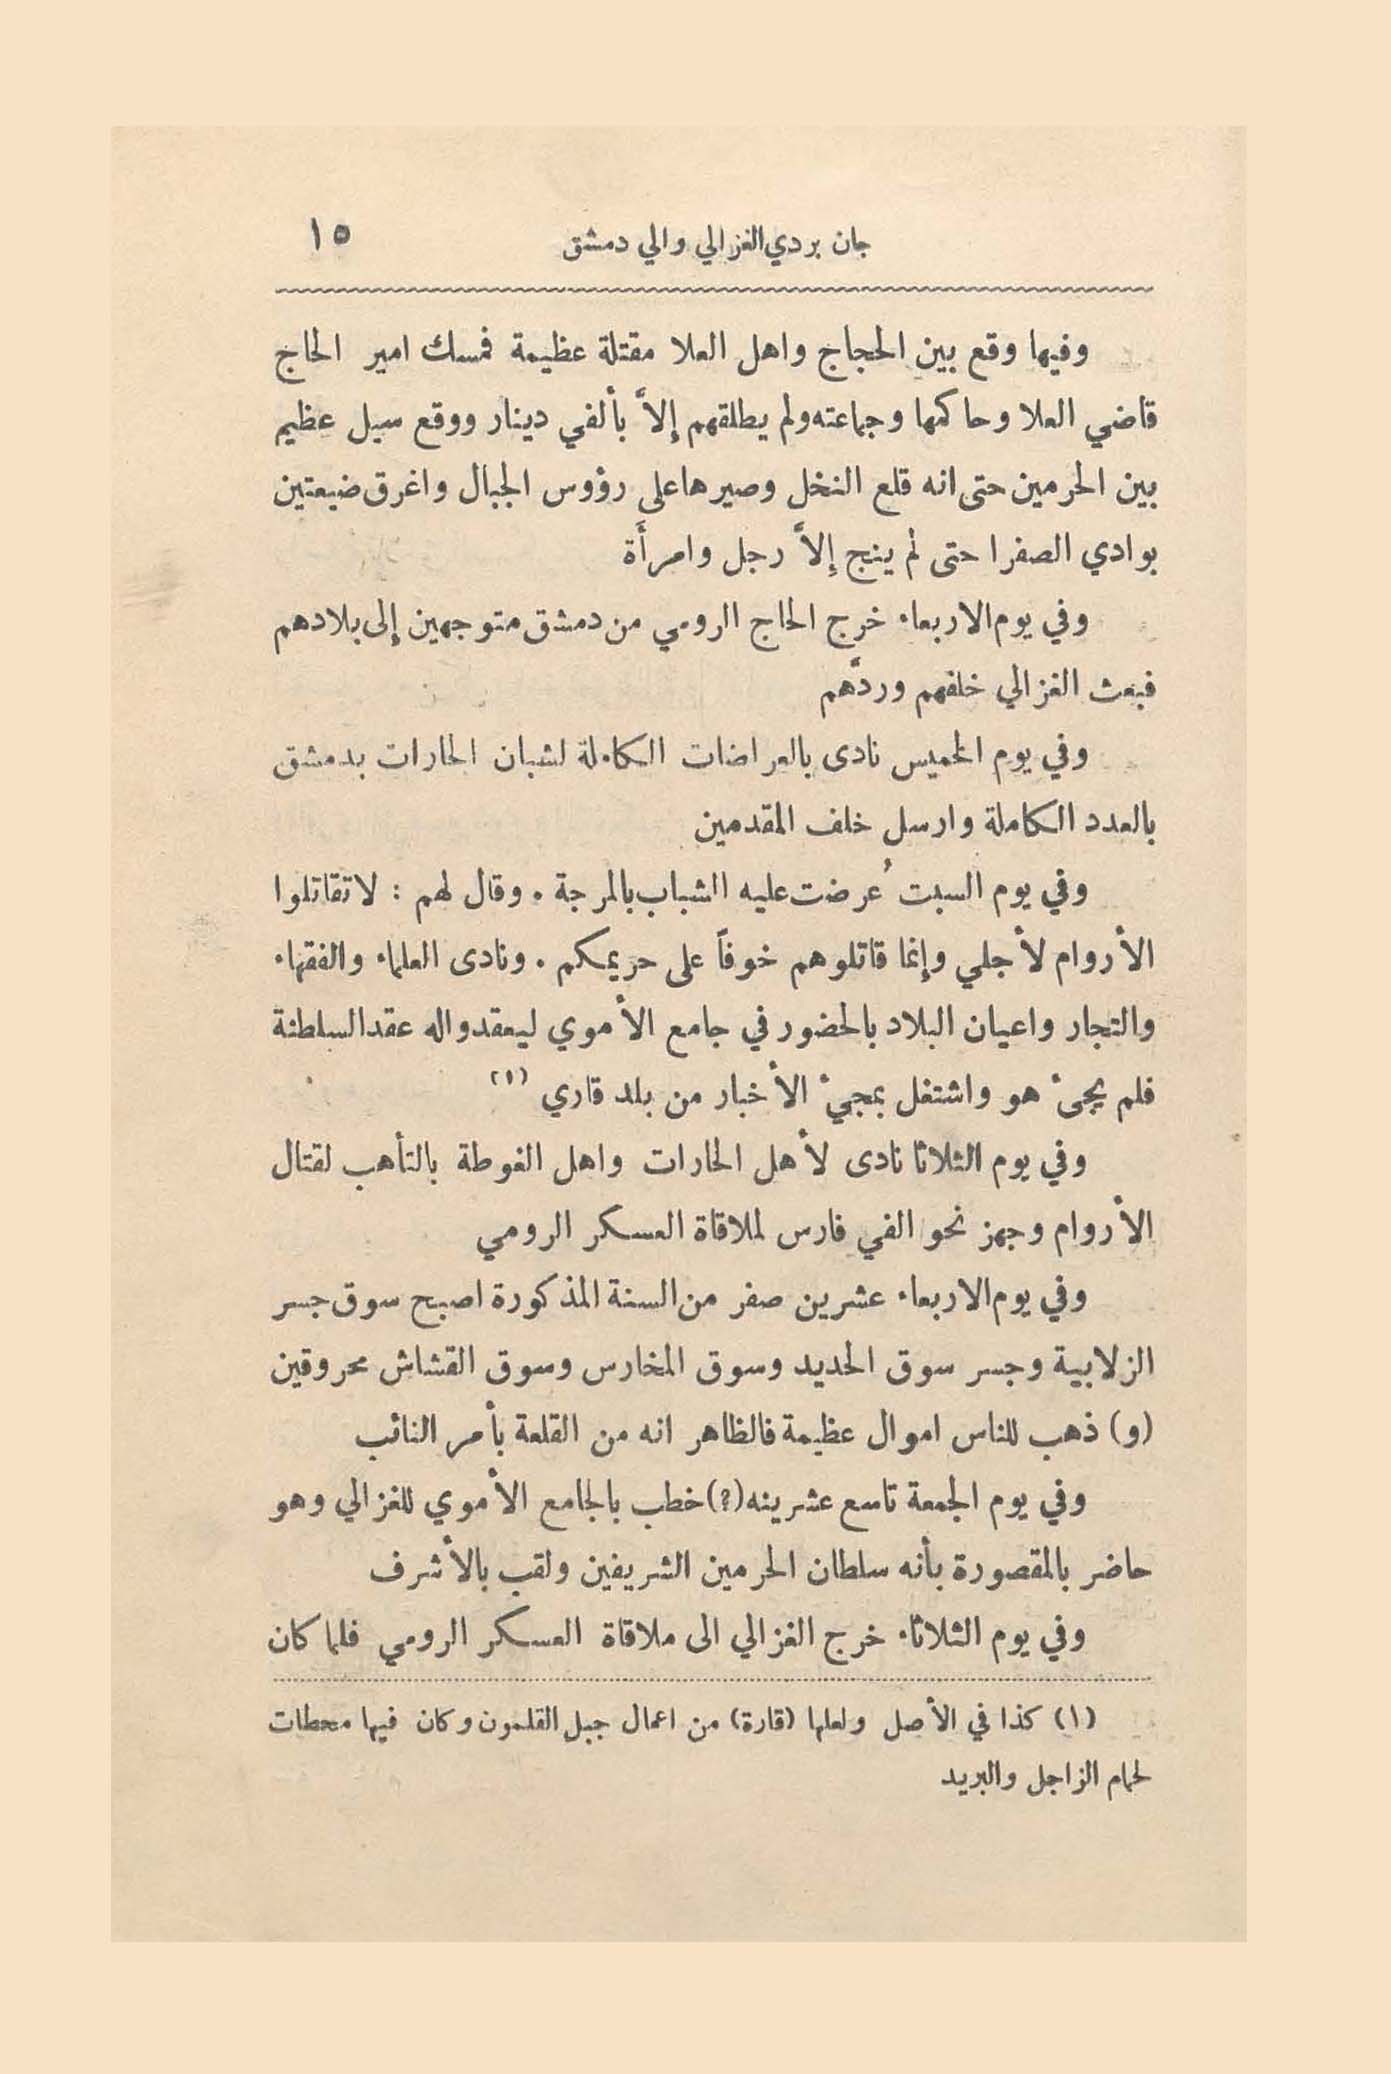 جان بردي الغزالي والي دمشق ١٥
وفيها وقع بين الحجاج واهل العلا مقتلة عظيمة فمسك امير الحاج
قاضي العلا وحاكمها وجماعته ولم يطلقهم إلاَّ بألفي دينار ووقع سيل عظيم
بين الحرمين حتى انه قلع النخل وصيرها على رؤوس الجبال واغرق ضيعتين
بوادي الصفرا حتى لم ينج إلاَّ رجل وامرأَة
وفي يوم الاربعاء خرج الحاج الرومي من دمشق متوجهين إلى بلادهم
فبعث الغزالي خلفهم وردَّهم
وفي يوم الخميس نادى بالعراضات الكاملة لشبان الحارات بدمشق
بالعدد الكاملة وارسل خلف المقدمين
وفي يوم السبت عُرضت عليه الشباب بالمرجة . وقال لهم : لا تقاتلوا
الأروام لأجلي وإنما قاتلوهم خوفاً على حريمكم . ونادى العلماء والفقهاء
والتجار واعيان البلاد بالحضور في جامع الأموي ليعقدوا له عقد السلطنة
فلم يجىء هو واشتغل بمجيء الأخبار من بلد قاري (١)
وفي يوم الثلاثا نادى لأهل الحارات واهل الغوطة بالتأهب لقتال
الأروام وجهز نحو الفي فارس لملاقاة العسكر الرومي
وفي يوم الاربعاء عشرين صفر من السنة المذكورة اصبح سوق جسر
الزلابية وجسر سوق الحديد وسوق المخارس وسوق القشاش محروقين
(و) ذهب للناس اموال عظيمة فالظاهر انه من القلعة بأمر النائب
وفي يوم الجمعة تاسع عشرينه (؟) خطب بالجامع الأموي للغزالي وهو
حاضر بالمقصورة بأنه سلطان الحرمين الشريفين ولقب بالأشرف
وفي يوم الثلاثاء خرج الغزالي الى ملاقاة العسكر الرومي فلما كان
(١) كذا في الأصل ولعلها (قارة) من اعمال جبل القلمون وكان فيها محطات
لحمام الزاجل والبريد